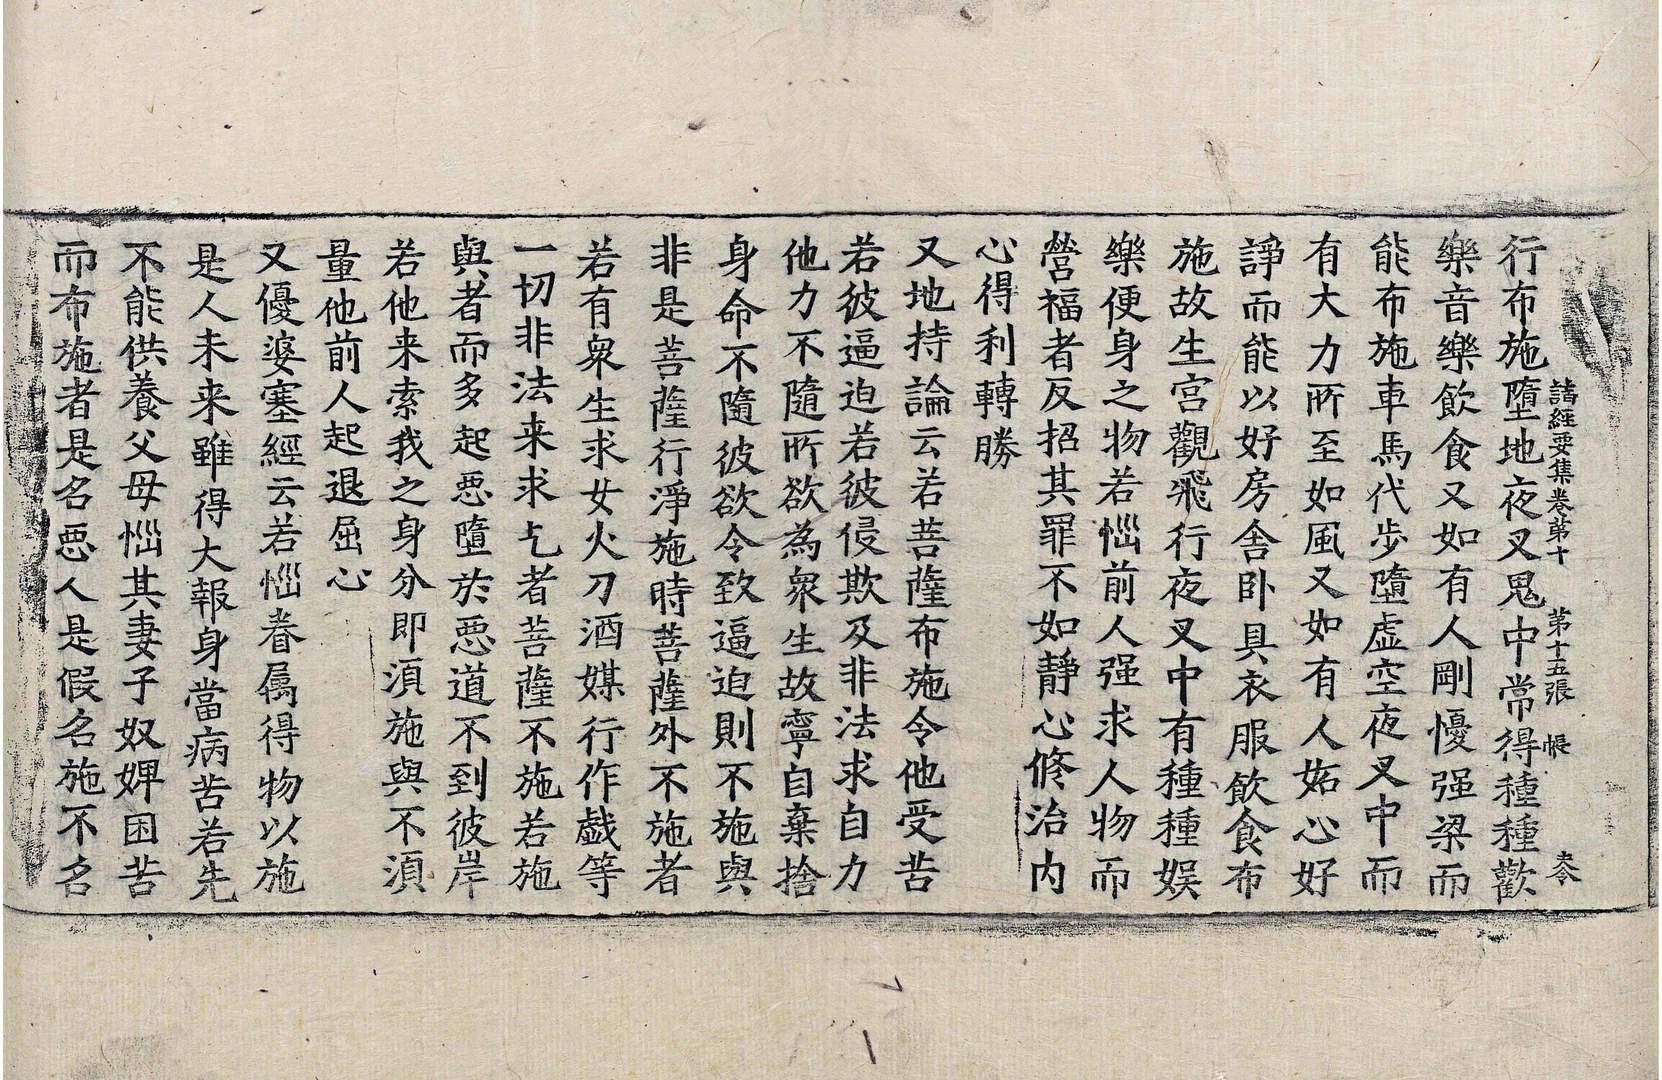 諸經要集卷苐十　第十五張　帳　夳
行布施墮地夜叉鬼中常得種種歡
樂音樂飲食又如有人剛慢强梁而
能布施車馬代步墮虛空夜叉中而
有大力所至如風又如有人妬心好
諍而能以好房舍卧具衣服飲食布
施故生宮觀飛行夜叉中有種種娛
樂便身之物若惱前人强求人物而
營福者反招其罪不如靜心修治内
心得利轉勝
又地持論云若菩薩布施令他受苦
若彼逼迫若彼侵欺及非法求自力
他力不隨所欲為衆生故寧自棄捨
身命不隨彼欲令致逼迫則不施與
非是菩薩行淨施時菩薩外不施者
若有衆生求女火刀酒媒行作戯等
一切非法来求乞者菩薩不施若施
與者而多起悪墮於悪道不到彼岸
若他来索我之身分即須施與不須
量他前人起退屈心
又優婆塞經云若惱眷属得物以施
是人未来雖得大報身當病苦若先
不能供養父母惱其妻子奴婢困苦
而布施者是名悪人是假名施不名